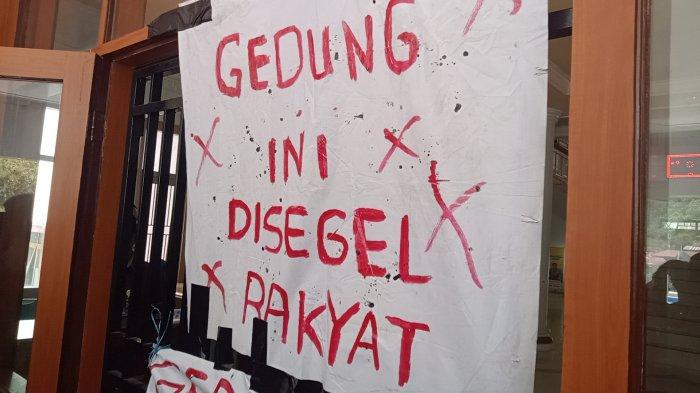 GEDUNG
INI
DISEGEL
RAKYAT